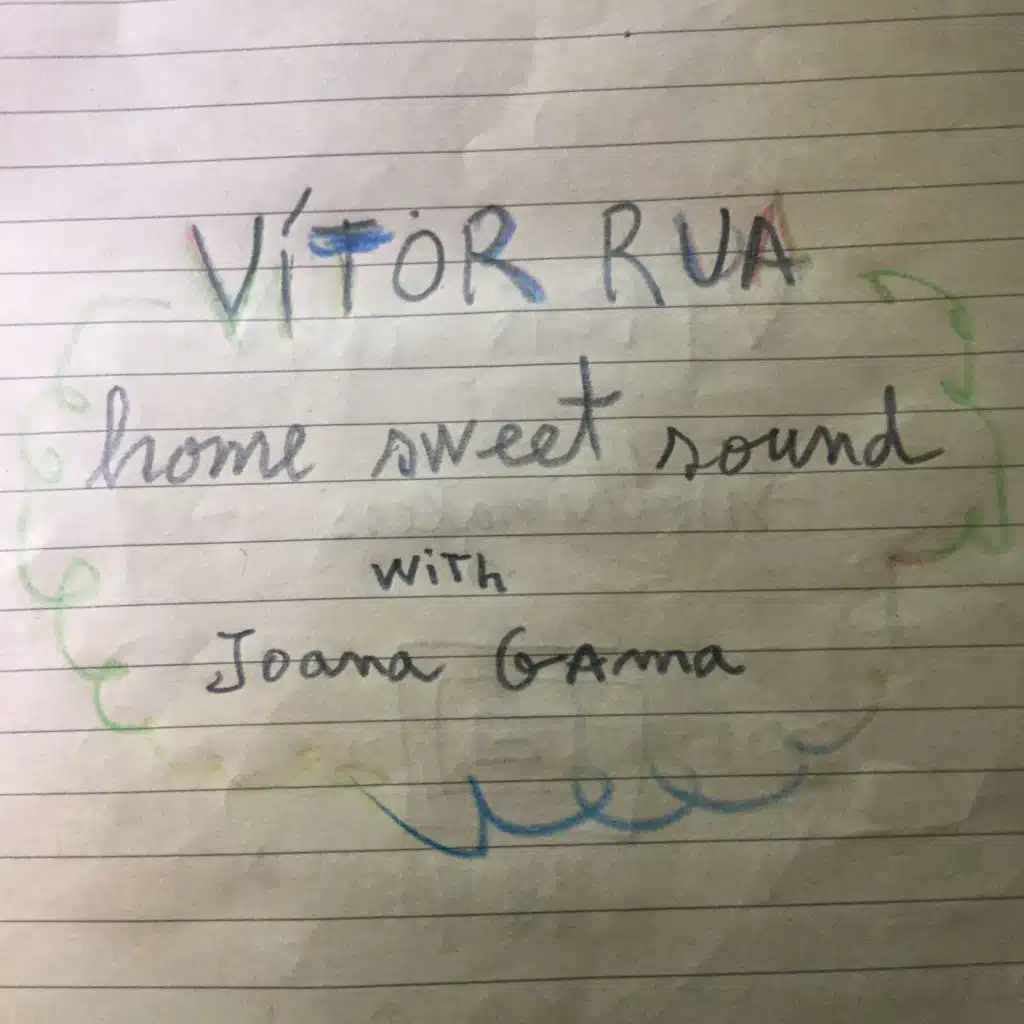 VÍTOR RUA
home sweet sound
with
Joana Gama